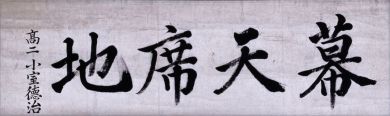 幕天席地
高二 小室德治